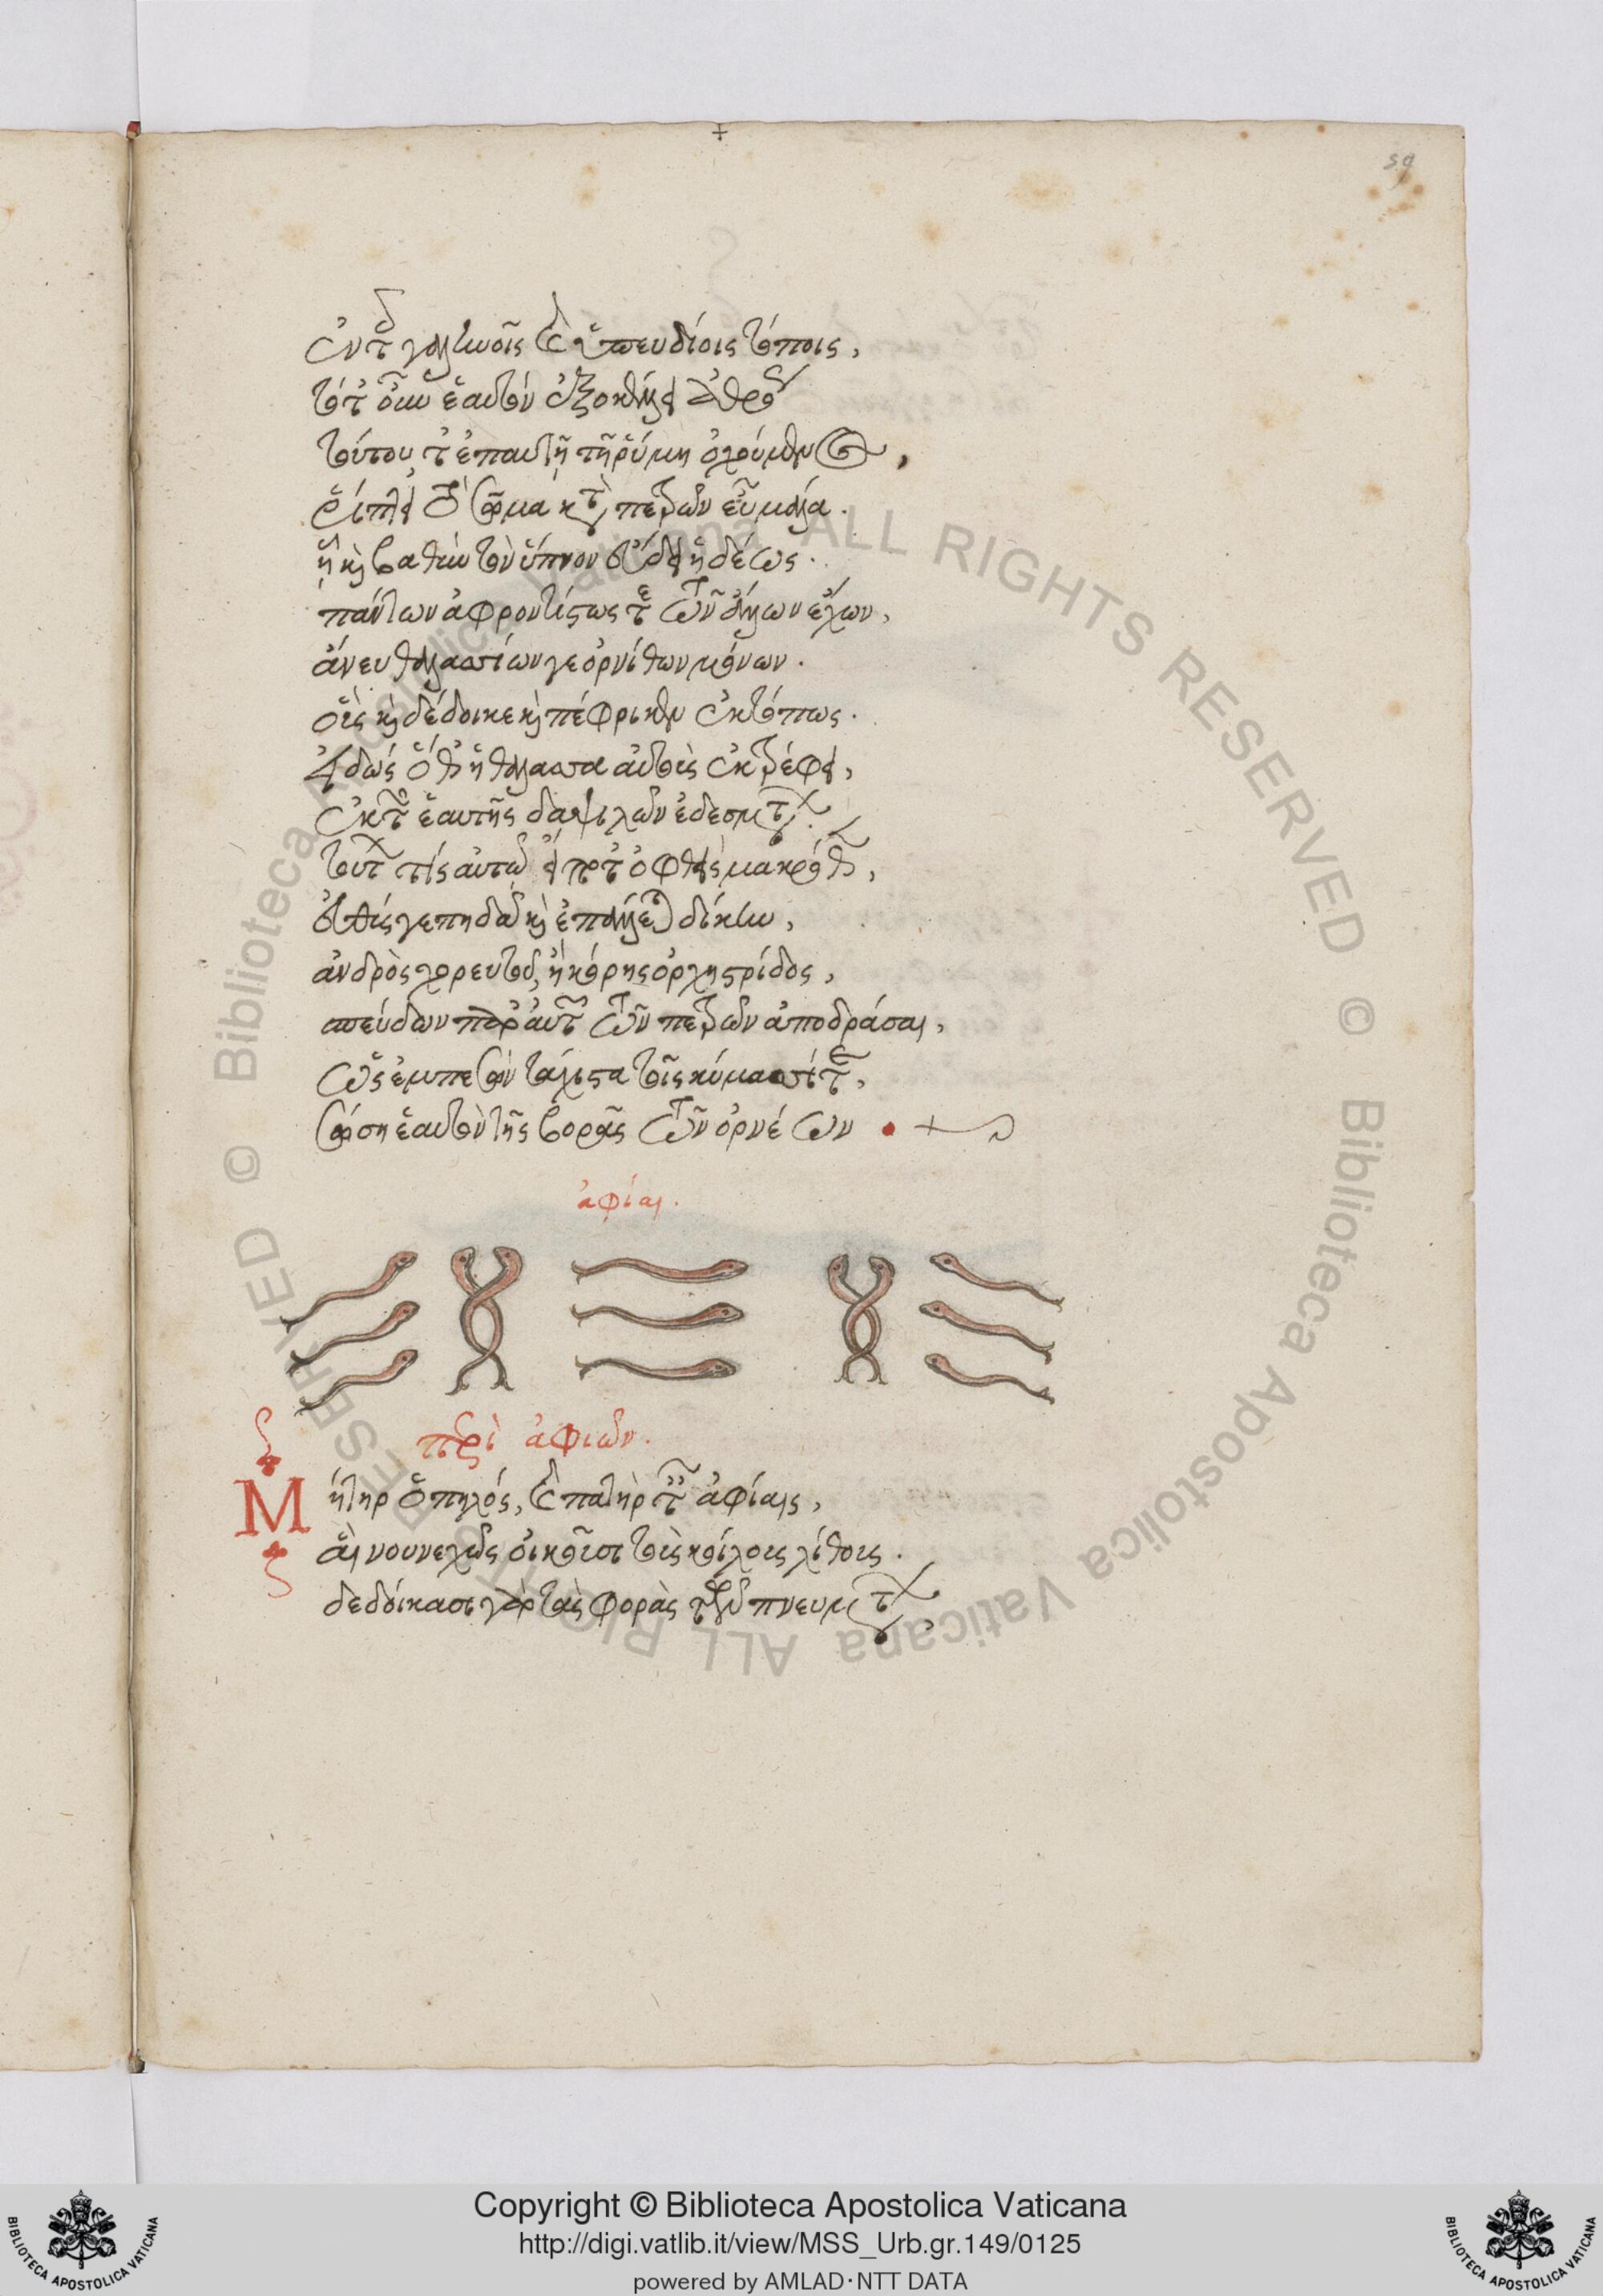 59
ἐν τοῖς γαληνοῖς καὶ ὑπευδίοις τόποις,
τότ' οὖν ἑαυτὸν ἐξοκέλλει
τούτου τ' ἐπ' αὐτῇ τῇ ῥύμῃ
ῥίπτει τὸ σῶμα κατὰ πετρῶν εὖ μάλα.
ἢ καὶ βαθὺν τὸν ὕπνον εὕδει ἡδέως.
πάντων ἀφροντίστως τε τῶν ἄλλων ἔχων,
ἄνευ θαλασσίων γε ὀρνίθων μόνων.
οὓς καὶ δέδοικε καὶ πέφρικεν ἐκτόπως.
εἰδὼς ὅθ' ἡ θάλασσα αὐτοὺς ἐκτρέφει,
ἐκ τῶν ἑαυτῆς δαψιλῶν ἐδεσμάτων.
τούτων τις αὐτῷ εἴπερ ὀφθείη μακρόθεν,
εὐθύς γε πηδᾷ καὶ ἐπάλλεται δίκην,
ἀνδρὸς χορευτοῦ, ἢ κόρης ὀρχηστρίδος,
σπεύδων παρ' αὐτῶν τῶν πετρῶν ἀποδράσαι,
ὡς ἐμπεσὼν τάχιστα τοῖς κύμασί τε,
σώσῃ ἑαυτὸν τῆς βορᾶς τῶν ὀρνέων
ἀφίαι.
περὶ ἀφιῶν.
Μήτηρ ὁ πηλός, καὶ πατὴρ ταῖς ἀφίαις,
αἳ νουνεχῶς οἰκοῦσι τοὺς κοίλους λίθους.
δεδοίκασι γὰρ τὰς φορὰς τῶν πνευμάτων,
Copyright © Biblioteca Apostolica Vaticana
http://digi.vatlib.it/view/MSS_Urb.gr.149/0125
powered by AMLAD·NTT DATA
BIBLIOTECA APOSTOLICA VATICANA
BIBLIOTECA APOSTOLICA VATICANA
© Biblioteca Apostolica Vaticana ALL RIGHTS RESERVED
© Biblioteca Apostolica Vaticana ALL RIGHTS RESERVED